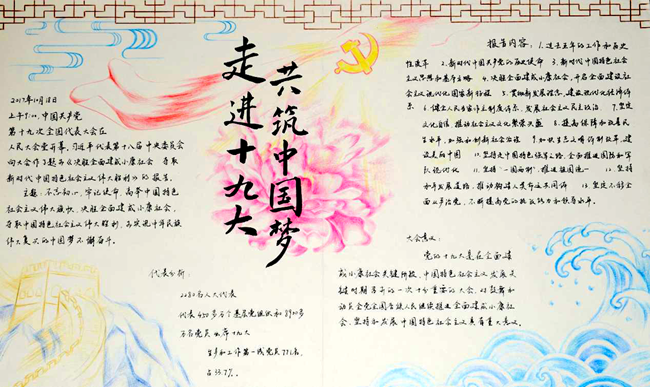 走进十九大
共筑中国梦
2017年10月18日
上午9:00,中国共产党
第十九次全国代表大会在
人民大会堂开幕,习近平代表第十八届中央委员会
向大会作了题为《决胜全面建成小康社会 夺取
新时代中国特色社会主义伟大胜利》的报告。
主题:不忘初心,牢记使命,高举中国特色
社会主义伟大旗帜,决胜全面建成小康社会,
夺取中国特色社会主义伟大胜利,为实现中华民族
伟大复兴的中国梦不懈奋斗。
代表分析:
名人大代表
代表450多万个基层党组织和8900多
万名党员出席十九大
生产和工作第一线党员771名,
占33.7%。
报告内容:1.过去五年的工作和历史
性变革 2.新时代中国共产党的历史使命 3.新时代中国特色社会
主义思想和基本方略 4.决胜全面建成小康社会,开启全面建设社会
主义现代化国家新征程 5.贯彻新发展理念,建设现代化经济体
系 6.健全人民当家作主制度体系,发展社会主义民主政治 7.坚定
文化自信 推动社会主义文化繁荣兴盛 8.提高保障和改善民
生水平,加强和创新社会治理 9.加快生态文明体制改革,建
设美丽中国 10.坚持走中国特色强军之路,全面推进国防和军
队现代化 11.坚持"一国两制",推进祖国统一 12.坚持
和平发展道路,推动构建人类命运共同体 13.坚定不移全
面从严治党,不断提高党的执政能力和领导水平。
大会意义:
党的十九大是在全面建
成小康社会关键阶段,中国特色社会主义发展关
键时期召开的一次十分重要的大会,对鼓舞和
动员全党全国各族人民继续推进全面建成小康社
会、坚持和发展中国特色社会主义具有重大意义。